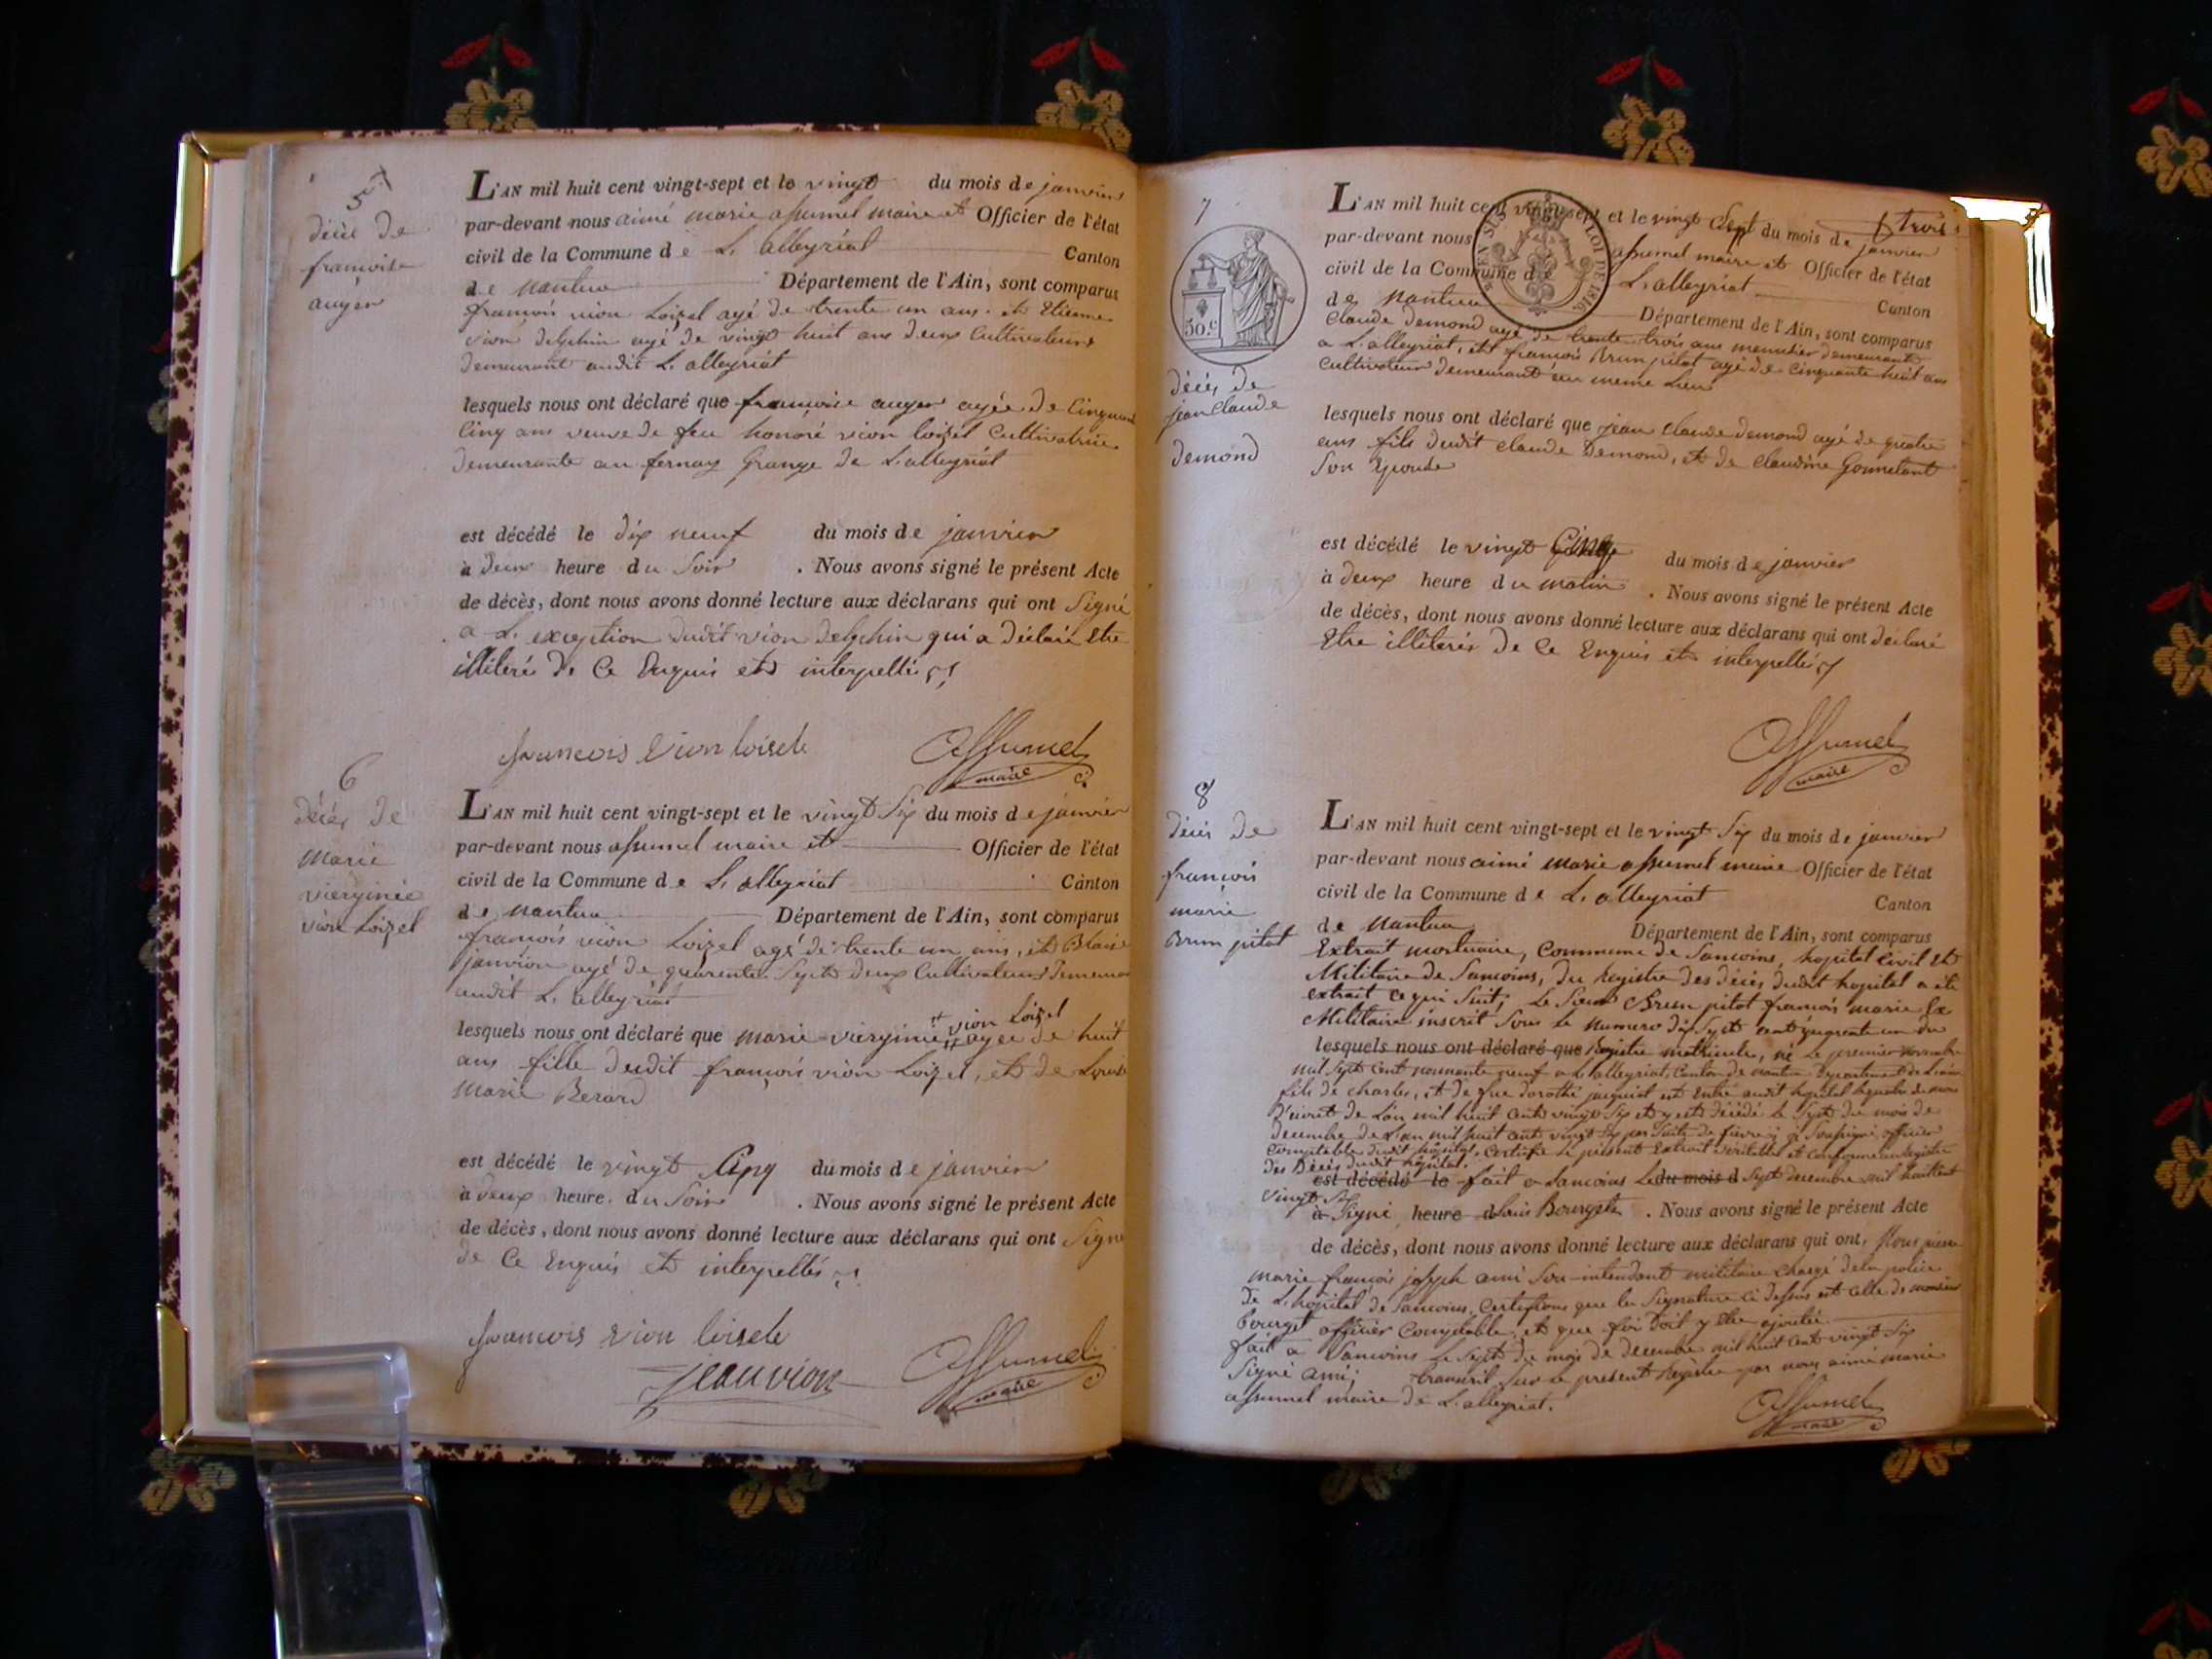 5
décès de
françoise
auger
L'AN mil huit cent vingt-sept et le vingt du mois de janvier
par-devant nous aimé marie assumel maire et Officier de l'état
civil de la Commune de L. alleyriat Canton
de nantua Département de l'Ain, sont comparus
françois vion Loizel agé de trente un ans. et Etienne
vion delphin agé de vingt huit ans deux Cultivateurs
demeurant audit L. alleyriat
lesquels nous ont déclaré que françoise auger agée de Cinquante
Cinq ans veuve de feu honoré vion loizel Cultivatrice
demeurante au fernay Grange de L'alleyriat
est décédé le dix neuf du mois de janvier
à deux heure du Soir . Nous avons signé le présent Acte
de décès, dont nous avons donné lecture aux déclarans qui ont Signé
a L. exception dudit vion Delphin qui a déclaré Etre
illiteré de Ce Enquis et interpellés
françois vion loisele Assumel
maire
6
décès de
Marie
vierginie
vion Loizel
L'AN mil huit cent vingt-sept et le vingt Six du mois de janvier
par-devant nous assumel maire et Officier de l'état
civil de la Commune de L. alleyriat Canton
de nantua Département de l'Ain, sont comparus
françois vion Loizel agé de trente un ans, et Blaise
janvion agé de quarente Sept deux Cultivateurs
audit L. alleyriat
lesquels nous ont déclaré que marie vierginie vion Loizel agée de huit
ans fille dudit françois vion Loizel, et de Louise
Marie Berard
est décédé le vingt Cinq du mois de janvier
à deux heure du Soir . Nous avons signé le présent Acte
de décès, dont nous avons donné lecture aux déclarans qui ont Signé
de Ce Enquis et interpellés
françois vion loisele
jeanvion Assumel
maire
trois
7
50.c
LOI DE 1816
décès de
jean Claude
demond
L'AN mil huit cent vingt-sept et le vingt Sept du mois de janvier
par-devant nous assumel maire et Officier de l'état
civil de la Commune de L. alleyriat Canton
de Nantua Département de l'Ain, sont comparus
Claude demond agé de trente trois ans menuisier demeurant
a L. alleyriat, et françois Brun pitot agé de Cinquante huit ans
Cultivateur demeurant au meme Lieu
lesquels nous ont déclaré que jean Claude demond agé de quatre
ans fils dudit Claude Demond, et de Claudine Gonnetant
Son Epouse
est décédé le vingt Cinq du mois de janvier
à deux heure du matin . Nous avons signé le présent Acte
de décès, dont nous avons donné lecture aux déclarans qui ont déclaré
Etre illiterés de Ce Enquis et interpellés
Assumel
maire
8
décès de
françois
marie
Brun pitot
L'AN mil huit cent vingt-sept et le vingt Six du mois de janvier
par-devant nous aimé marie assumel maire Officier de l'état
civil de la Commune de L. alleyriat Canton
de Nantua Département de l'Ain, sont comparus
Extrait mortuaire, Commune de Sancoins, hopital Civil Et
Militaire de Sancoins, du Registre des décès dudit hopital a été
extrait ce qui Suit; Le Sieur Brun pitot françois marie Ex
Militaire inscrit Sous le numero dix Sept cent quarente un du
lesquels nous ont déclaré que Registre matricule, né Le premier novembre
mil Sept Cent nonnante neuf a L. alleyriat, Canton de nantua Departement de L'ain
fils de Charles, et de feue dorothé jacquiot est Entré audit hopital
de L'an mil huit cent vingt Six et y est décédé le Sept du mois de
decembre de L'an mil huit cent vingt Six par Suite de fievre Soussigné officier
Comptable dudit hopital, Certifie le présent Extrait veritable et conforme au registre
des Décès dudit hôpital.
est décédé le fait a Sancoins Le du mois d Sept decembre mil huit Cent
vingt Six
à Signé heure d Louis Bourget . Nous avons signé le présent Acte
de décès, dont nous avons donné lecture aux déclarans qui ont, Nous pierre
marie françois joseph ami Sou-intendant militaire chargé de la police
de L. hôpital de Sancoins, Certifions que la Signature ci dessus est celle de monsieur
Bourget officier Comptable, et que foi doit y Etre ajoutée
fait a Sancoins le Sept du mois de decembre mil huit cent vingt Six
Signé ami; transcrit Sur le présent Registre par nous aimé marie
assumel maire de L. alleyriat.
Assumel
maire